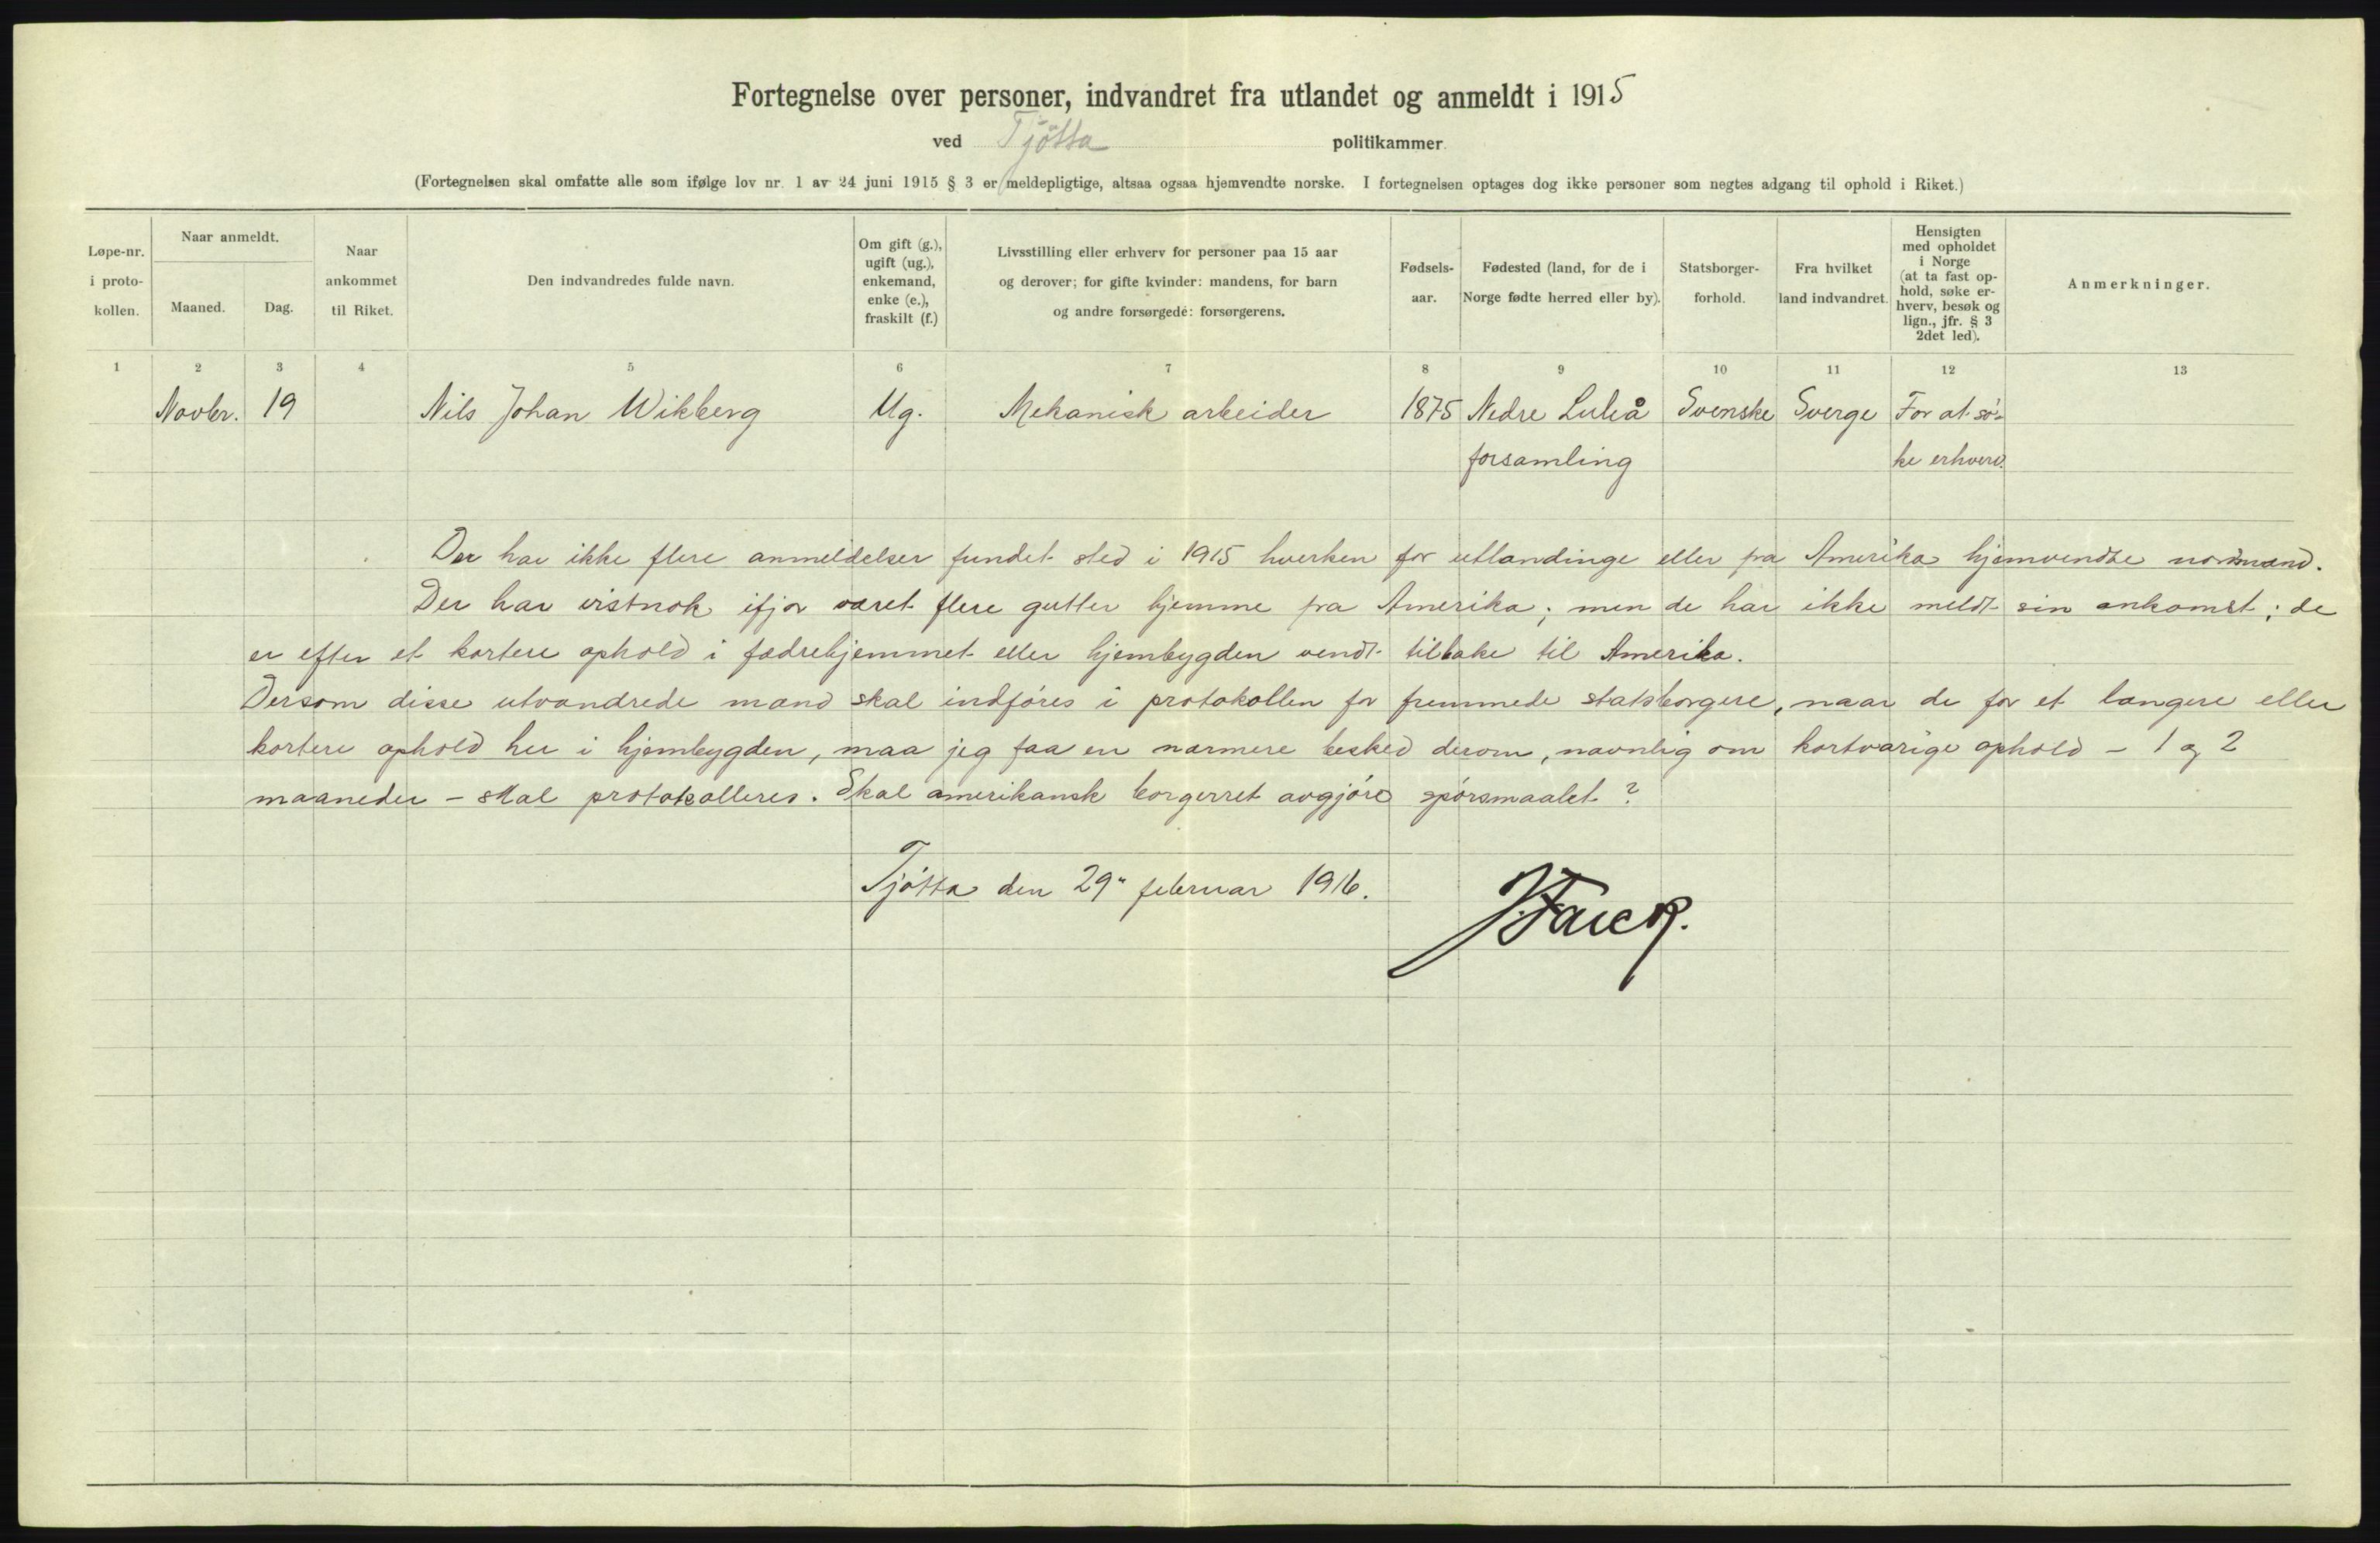 Fortegnelse over personer, indvandret fra utlandet og anmeldt i 1915
ved Tjötta politikammer
(Fortegnelsen skal omfatte alle som ifølge lov nr. 1 av 24 juni 1915 § 3 er meldepligtige, altsaa ogsaa hjemvendte norske. I fortegnelsen optages dog ikke personer som negtes adgang til ophold i Riket.)
Løpe-nr. i proto- kollen.
Naar anmeldt.
Maaned.
Dag.
Naar ankommet til Riket.
Den indvandredes fulde navn.
Om gift (g.), ugift (ug.), enkemand, enke (e.), fraskilt (f.)
Livsstilling eller erhverv for personer paa 15 aar
og derover; for gifte kvinder: mandens, for barn
og andre forsørgede: forsørgerens.
Fødsels- aar.
Fødested (land, for de i Norge fødte herred eller by).
Statsborger- forhold.
Fra hvilket land indvandret.
Hensigten med opholdet i Norge (at ta fast op- hold, søke er- hverv, besøk og lign., jfr. § 3 2det led).
Anmerkninger.
1 2 3 4 5 6 7 8 9 10 11 12 13
Novbr. 19 Nils Johan Wikberg Ug. Mekanisk arbeider 1875 Nedre Luleå Svenske Sverge For at sö-
forsamling ke erhverv.
Der har ikke flere anmeldelser fundet sted i 1915 hverken for utlændinge eller fra Amerika hjemvendte nordmænd.
Der har vistnok ifjor været flere gutter hjemme fra Amerika; men de har ikke meldt sin ankomst; de
er efter et kortere ophold i fædrehjemmet eller hjembygden vendt tilbake til Amerika.
Dersom disse utvandrede mænd skal indföres i protokollen for fremmede statsborgere, naar de for et længere eller
kortere ophold her i hjembygden, maa jeg faa en nærmere besked derom, navnlig om kortvarige ophold – 1 og 2
maaneder – skal protokolleres. Skal amerikansk borgerret avgjöre spörsmaalet?
Tjötta den 29" februar 1916.